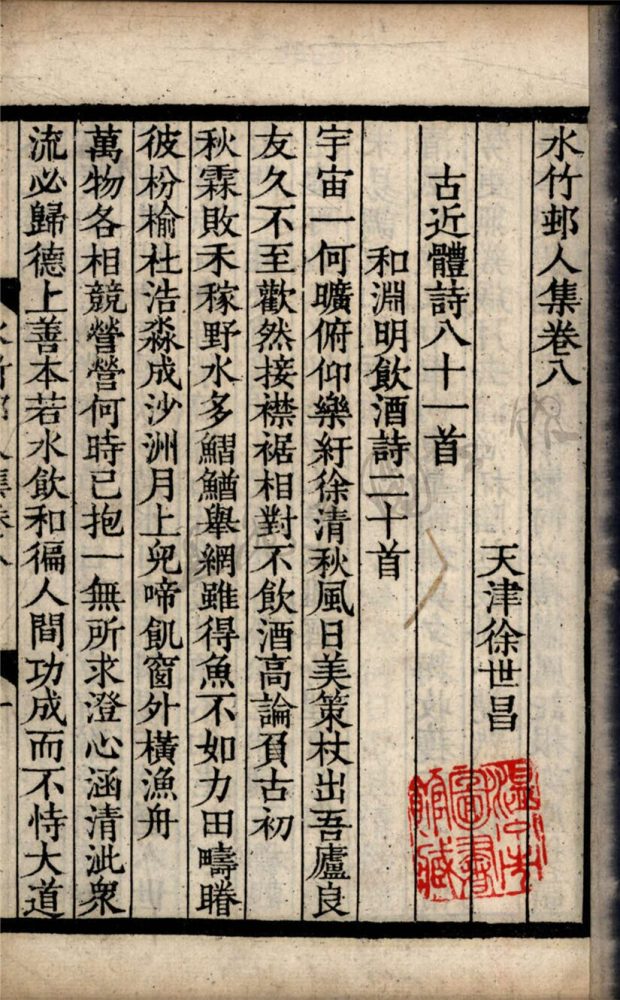 水竹邨人集卷八
天津徐世昌
古近體詩八十一首
和淵明飲酒詩二十首
宇宙一何曠俯仰樂紆徐清秋風日美策杖出吾廬良
友久不至歡然接襟裾相對不飲酒高論負古初
秋霖敗禾稼野水多鰼鰌舉網雖得魚不如力田疇睠
彼枌榆社浩淼成沙洲月上兒啼飢窗外橫漁舟
萬物各相競營營何時已抱一無所求澄心涵清泚衆
流必歸德上善本若水飲和徧人間功成而不恃大道